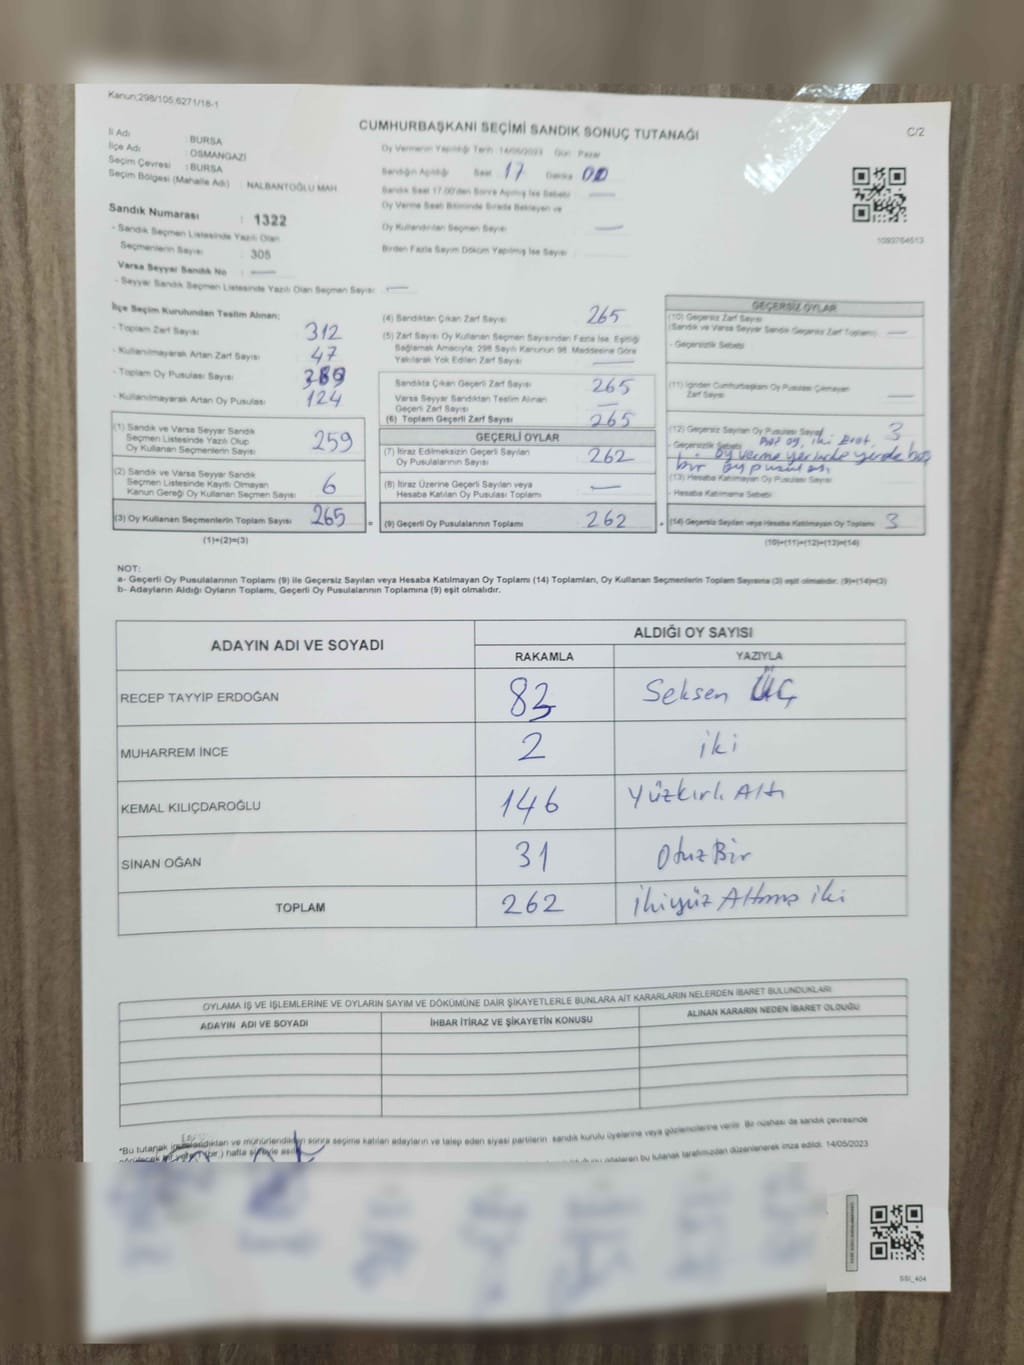 Kanun:298/105,6271/18-1
CUMHURBAŞKANI SEÇİMİ SANDIK SONUÇ TUTANAĞI
C/2
İl Adı : BURSA
İlçe Adı : OSMANGAZİ
Seçim Çevresi : BURSA
Seçim Bölgesi (Mahalle Adı) : NALBANTOĞLU MAH
Sandık Numarası : 1322
- Sandık Seçmen Listesinde Yazılı Olan
Seçmenlerin Sayısı : 305
Varsa Seyyar Sandık No : —
- Seyyar Sandık Seçmen Listesinde Yazılı Olan Seçmen Sayısı : —
Oy Vermenin Yapıldığı Tarih : 14/05/2023 Gün : Pazar
Sandığın Açıldığı Saat 17 Dakika 00
Sandık Saat 17.00'den Sonra Açılmış İse Sebebi —
Oy Verme Saati Bitiminde Sırada Bekleyen ve
Oy Kullandırılan Seçmen Sayısı —
Birden Fazla Sayım Döküm Yapılmış İse Sayısı
1093764613
İlçe Seçim Kurulundan Teslim Alınan;
- Toplam Zarf Sayısı 312
- Kullanılmayarak Artan Zarf Sayısı 47
- Toplam Oy Pusulası Sayısı 389
- Kullanılmayarak Artan Oy Pusulası 124
(1) Sandık ve Varsa Seyyar Sandık
Seçmen Listesinde Yazılı Olup
Oy Kullanan Seçmenlerin Sayısı 259
(2) Sandık ve Varsa Seyyar Sandık
Seçmen Listesinde Kayıtlı Olmayan
Kanun Gereği Oy Kullanan Seçmen Sayısı 6
(3) Oy Kullanan Seçmenlerin Toplam Sayısı 265
(1)+(2)=(3)
(4) Sandıktan Çıkan Zarf Sayısı 265
(5) Zarf Sayısı Oy Kullanan Seçmen Sayısından Fazla İse, Eşitliği
Sağlamak Amacıyla; 298 Sayılı Kanunun 98. Maddesine Göre
Yakılarak Yok Edilen Zarf Sayısı —
Sandıkta Çıkan Geçerli Zarf Sayısı 265
Varsa Seyyar Sandıktan Teslim Alınan
Geçerli Zarf Sayısı —
(6) Toplam Geçerli Zarf Sayısı 265
GEÇERLİ OYLAR
(7) İtiraz Edilmeksizin Geçerli Sayılan
Oy Pusulalarının Sayısı 262
(8) İtiraz Üzerine Geçerli Sayılan veya
Hesaba Katılan Oy Pusulası Toplamı —
= (9) Geçerli Oy Pusulalarının Toplamı 262
GEÇERSİZ OYLAR
(10) Geçersiz Zarf Sayısı
(Sandık ve Varsa Seyyar Sandık Geçersiz Zarf Toplamı) —
- Geçersizlik Sebebi
(11) İçinden Cumhurbaşkanı Oy Pusulası Çıkmayan
Zarf Sayısı —
(12) Geçersiz Sayılan Oy Pusulası Sayısı 3
- Geçersizlik Sebebi oy, iki
oy verme yerinde yerde boş
bir oy pusulası
(13) Hesaba Katılmayan Oy Pusulası Sayısı
- Hesaba Katılmama Sebebi
+ (14) Geçersiz Sayılan veya Hesaba Katılmayan Oy Toplamı 3
(10)+(11)+(12)+(13)=(14)
NOT:
a- Geçerli Oy Pusulalarının Toplamı (9) ile Geçersiz Sayılan veya Hesaba Katılmayan Oy Toplamı (14) Toplamları, Oy Kullanan Seçmenlerin Toplam Sayısına (3) eşit olmalıdır. (9)+(14)=(3)
b- Adayların Aldığı Oyların Toplamı, Geçerli Oy Pusulalarının Toplamına (9) eşit olmalıdır.
ADAYIN ADI VE SOYADI
ALDIĞI OY SAYISI
RAKAMLA YAZIYLA
RECEP TAYYİP ERDOĞAN 83 Seksen ÜÇ
MUHARREM İNCE 2 iki
KEMAL KILIÇDAROĞLU 146 Yüzkırk Altı
SİNAN OĞAN 31 OtuzBir
TOPLAM 262 İkiyüz Altmış iki
OYLAMA İŞ VE İŞLEMLERİNE VE OYLARIN SAYIM VE DÖKÜMÜNE DAİR ŞİKAYETLERLE BUNLARA AİT KARARLARIN NELERDEN İBARET BULUNDUKLARI
ADAYIN ADI VE SOYADI İHBAR İTİRAZ VE ŞİKAYETİN KONUSU ALINAN KARARIN NEDEN İBARET OLDUĞU
*Bu tutanak imzalandıktan ve mühürlendikten sonra seçime katılan adayların ve talep eden siyasi partilerin sandık kurulu üyelerine veya gözlemcilerine verilir. Bir nüshası da sandık çevresinde
(bir) hafta süreyle bu tutanak tarafımızdan düzenlenerek imza edildi. 14/05/2023
SSI_404